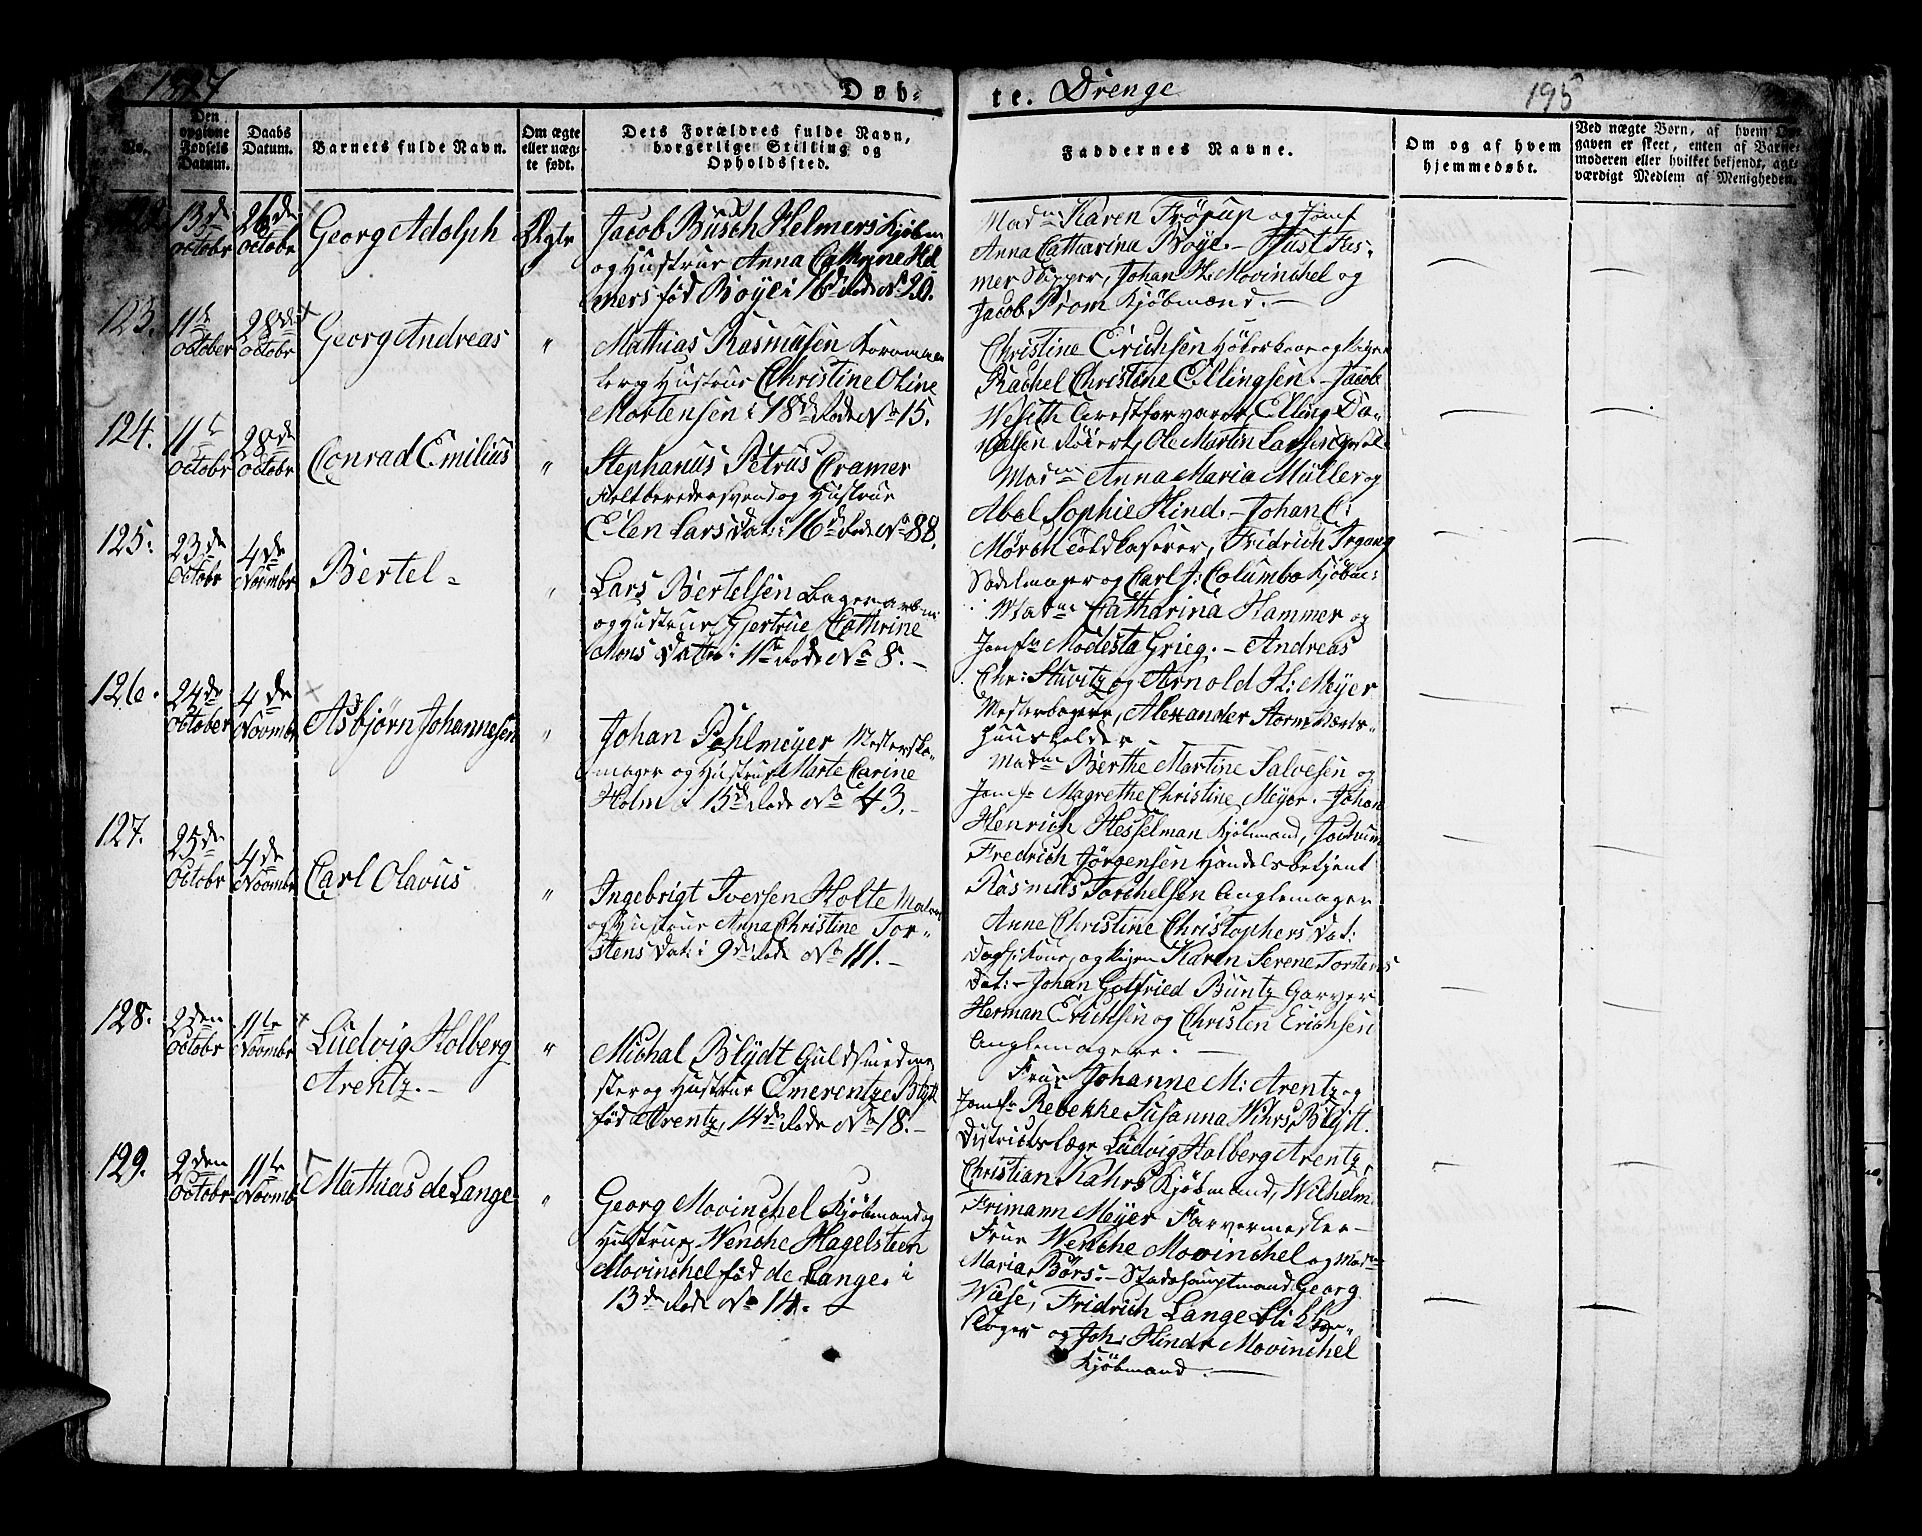 1827 Døb-
te. Drenge 195
No.
Den opgivne Fødsels Datum.
Daabs Datum.
Barnets fulde Navn.
Om ægte eller uægte født.
Dets Forældres fulde Navn, borgerlige Stilling og Opholdssted.
Faddernes Navne.
Om og af hvem hjemmedøbt.
Ved uægte Børn, af hvem Opgaven er skeet, enten af Barnemoderen eller hvilket bekjendt, agtværdigt Medlem af Menigheden.
13de octobr
26de octobr
Georg Adolph
Ægte
Jacob Busch Helmers Kjøbm
og Hustrue Anna Cathrine Hel-
mers fød Boye i 16de Rode No 20.
Madme Karen Frörup og Jomf
Anna Catharina Boye. - Just Fas-
mer Skipper, Johan H. Mowinchel og
Jacob Prom Kjøbmænd. -
123.
11te october
28de octobr
Georg Andreas
"
Mathias Rasmusen
og Hustrue Christine Oline
Mortensen i 18de Rode No 15.
Christine Erichsen Høkerkone og Pigen
Rachel Christine Ellingsen. - Jacob
Weseth Arrestforvarer, Elling Da-
nielsen Röiert, Ole Martin Larsen
124.
11te octobr
28de octobr
Conrad Emilius
"
Stephanus Petrus Cramer
Feltberedersvend og Hustrue
Elen Larsdat: i 16de Rode No 88.
Madme Anna Maria Müller og
Abel Sophie Hind. - Johan C:
Mørch Toldkaserer, Fridrich Irgang
Sadelmager og Carl J: Columbo Kjøbm:
125.
23de octobr
4de Novmbr
Bertel -
"
Lars Bertelsen Bagerarbm:
og Hustrue Gjertrue Cathrine
Mons Datter i 11te Rode No 8. -
Madme Catharina Hammer og
Jomfr Modesta Grieg. - Andreas
Chr: Stuvitz og Arnold H: Meyer
Mesterbagere, Alexander Storm Værts-
huusholder -
126.
24de October
4de Novmbr
Asbjørn Johannesen
"
Johan Pahlmeyer Mestersko-
mager og Hustrue Marte Carine
Holm i 15de Rode No 43. -
Madme Berthe Martine Salvesen og
Jomfr Magrethe Christine Meyer. - Johan
Henrich Hesselman Kjøbmand, Jochum
Fredrich Jörgensen Handelsbetjent
Rasmus Torchelsen Anglemager
127.
25de Octobr
4de Novmbr
Carl Olavus
"
Ingebrigt Iversen Holte
og Hustrue Anna Christine Tor-
stens Dat: i 9de Rode No 111. -
Anne Christine Christophers Dat:
og Pigen Karen Serene Torstens
Dat: - Johan Gotfried Buntz Garver
Herman Erichsen og Christen Erichsen
Anglemagere. -
128.
2den Octobr
11te Novmbr
Ludvig Holberg
Arentz. -
"
Michal Blydt Guldsmedme-
ster og Hustrue Emerentze Blytt
fød Arentz, 14de Rode No 18. -
Frue Johanne M: Arentz og
Jomfr Rebekke Susanna Wihrs Blytt.
Districtslæge Ludvig Holberg Arentz,
Christian Kahrs Kjøbmand, Wilhelm
Frimann Meyer Farvermester -
129.
2den Octobr
11te Novmb
Mathias de Lange
"
Georg Mowinchel Kjøbmand og
Hustrue Wenche Hagelsteen
Mowinchel fød de Lange. i
13de Rode No 14.
Frue Wenche Mowinchel og Madme
Maria Börs. - Stadshauptmand Georg
Wiese, Fridrich Lange Blikken-
slager og Joh: Hindr Mowinchel
Kjøbmand. -